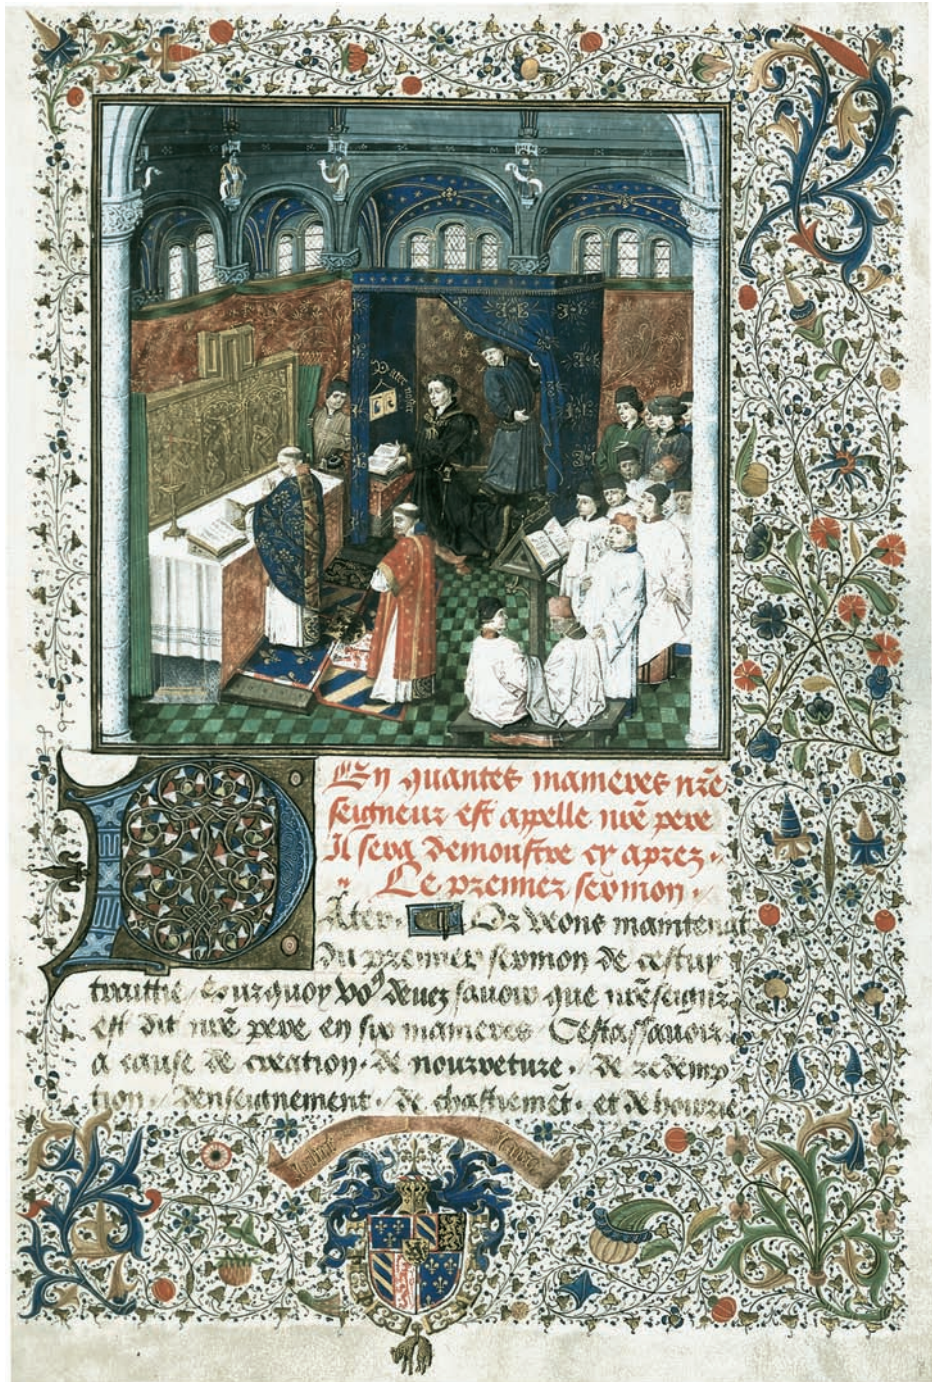 Pater noster
En quantes manieres nr̄e
seigneur est appelle nr̄e pere
Il sera demoustre cy aprez.
Le premier sermon.
PAter. Or dirons maintenāt
du premier sermon de cestuy
traittie / Pourquoy vo⁹ devez savoir que nr̄e seignr̄
est dit nr̄e pere en six manieres / Cestassavoir
a cause de creation. de nourreture. de redemp
tion / denseignement. de chastiemēt. et de hoirrie